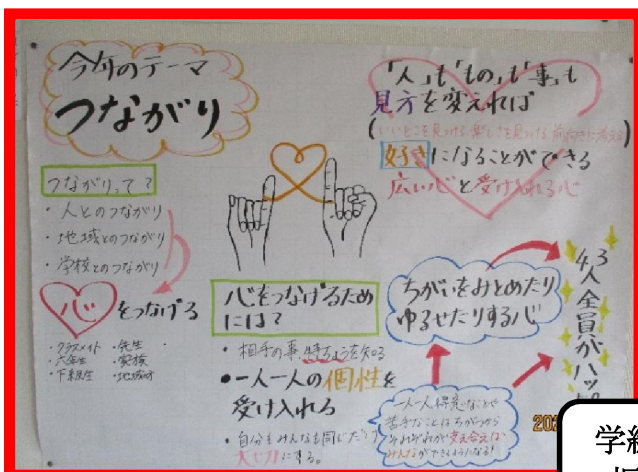 今年のテーマ
つながり
つながりって？
・人とのつながり
・地域とのつながり
・学校とのつながり
心をつなげる
・クラスメイト ・先生
・六年生 ・家族
・下級生 ・地域の方
心をつなげるため
には？
・相手の事、特ちょうを知る
・一人一人の個性を
受け入れる
・自分もみんなも同じだけ
大切にする。
「人」も「もの」も「事」も
見方を変えれば
(いいところを見つける、楽しさを見つける、前向きに考える)
好きになることができる
広い心と受け入れる心
ちがいをみとめたり
ゆるせたりする心
一人一人得意なことや
苦手なことはちがうから
それぞれが支え合えば
みんなができるようになる！
43人全員がハッピ
202
学級